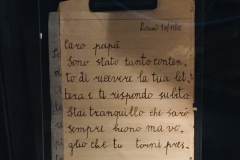 Caro papà
Sono stato tanto conten=
to di ricevere la tua let=
tera e ti rispondo subito
Stai tranquillo che sarò
sempre buono ma vo=
glio che tu torni pres=